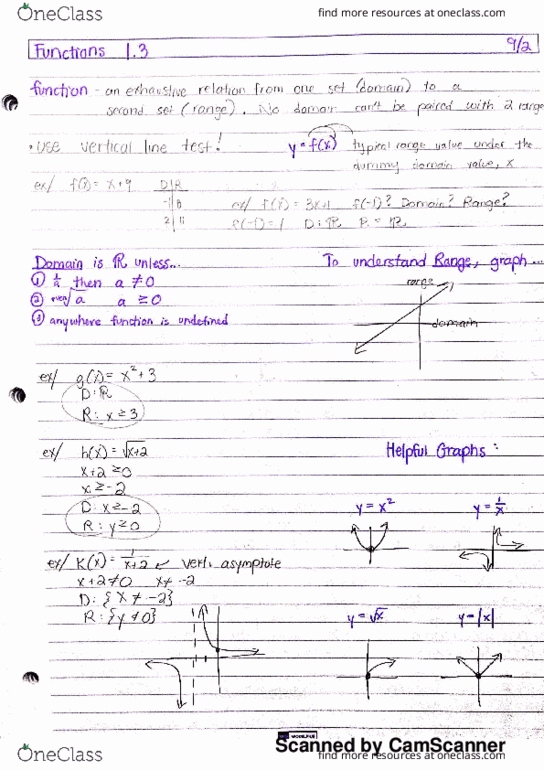 OneClass
find more resources at oneclass.com
Functions 1.3
9/2
function - an exhaustive relation from one set (domain) to a
second set (range). No domain can't be paired with 2 range
• USE vertical line test!
y = f(x)
typical range value under the
dummy domain value, x
ex/ f(x) = x+9
D|R
-1|8
2|11
ex/ f(x) = 3x+1 f(-1)? Domain? Range?
D: ℝ R = ℝ
Domain is ℝ unless...
① 1/a then a ≠ 0
② even√a a ≥ 0
③ anywhere function is undefined
To understand Range, graph...
range
domain
ex/ g(x) = x² + 3
D: ℝ
R: x ≥ 3
ex/ h(x) = √x+2
x+2 ≥ 0
x ≥ -2
D: x ≥ -2
R: y ≥ 0
Helpful Graphs:
y = x²
y = 1/x
ex/ K(x) = 1/x+2 ↙ vert. asymptote
x+2 ≠ 0 x ≠ -2
D: {x ≠ -2}
R: {y ≠ 0}
y = √x
y = |x|
Scanned by CamScanner
OneClass
find more resources at oneclass.com